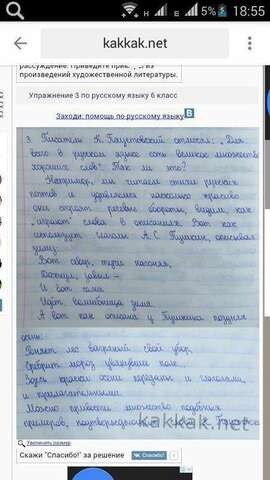 5% 18:55
kakkak.net
рассуждение. Приведите прик. , из
произведений художественной литературы.
Упражнение 3 по русскому языку 6 класс
Заходи: помощь по русскому языку В
3. Писатель К. Паустовский отмечал: „Для
всего в русском языке есть великое множество
хороших слов". Так ли это?
Например, мы читаем стихи русских
поэтов и удивляемся насколько красиво
они строят речевые обороты, видим, как
„играют" слова в описаниях. Вот как
использует глаголы А. С. Пушкин, описывая
зиму:
Вот север, тучи нагоняя,
Дохнул, завыл –
И вот сама
Идёт волшебница зима.
А вот как описана у Пушкина поздняя
осень:
Роняет лес багряный свой убор,
Сребрит мороз увянувшее поле...
Здесь краски осени переданы и глаголами,
и прилагательными.
Можно привести множество подобных
примеров, подтверждающих
kakkak.net
Увеличить размер
Скажи "Спасибо!" за решение